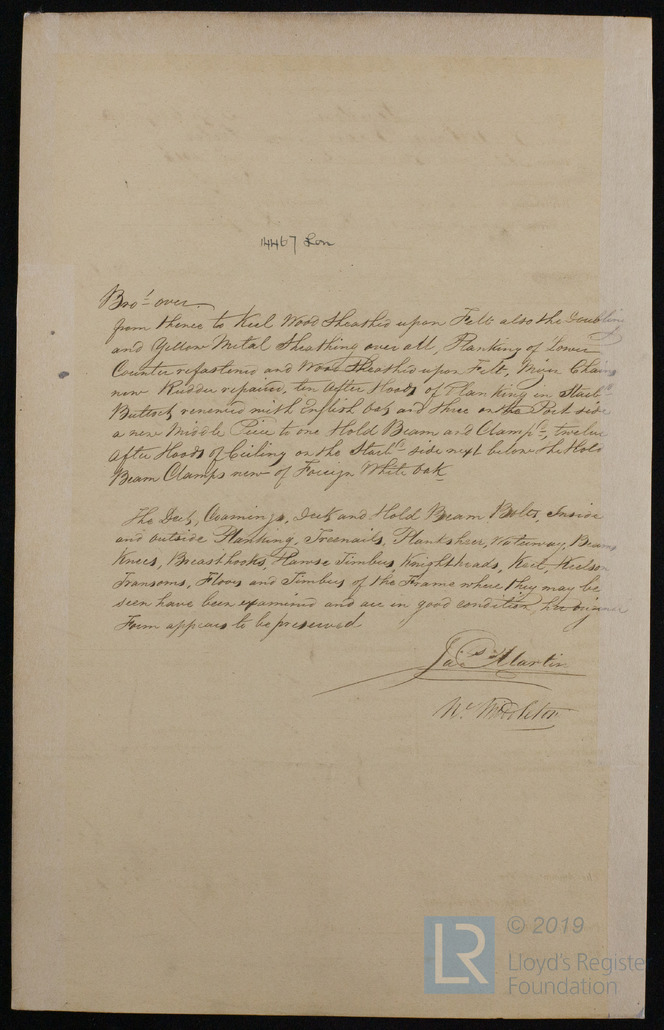 14467 Lon
Bro.t over
from thence to Keel Wood Sheathed upon Felt also the Doubling
and Yellow Metal Sheathing over all, Planking of Lower
Counter refastened and Wood Sheathed upon Felt, Main Chains
new Rudder repaired, ten After Hoods of Planking in Starb.d
Buttock renewed with English Oak and three on the Port side
a new Middle Piece to one Hold Beam and Clamp.d, twelve
after Hoods of Ceiling on the Starb.d side next below the Hold
Beam Clamps new of Foreign White Oak
The Deck, Comings, Deck and Hold Beam Bolts, Inside
and outside Planking, Treenails, Planksheer, Waterway, Beams
Knees, Breasthooks, Hawse Timbers, Knightheads, Keel, Keelson
Transoms, Floors and Timbers of the Frame where they may be
seen have been examined and are in good condition, her original
Form appears to be preserved
Ja.s Martin
W. Middleton
© 2019
LR
Lloyd's Register
Foundation